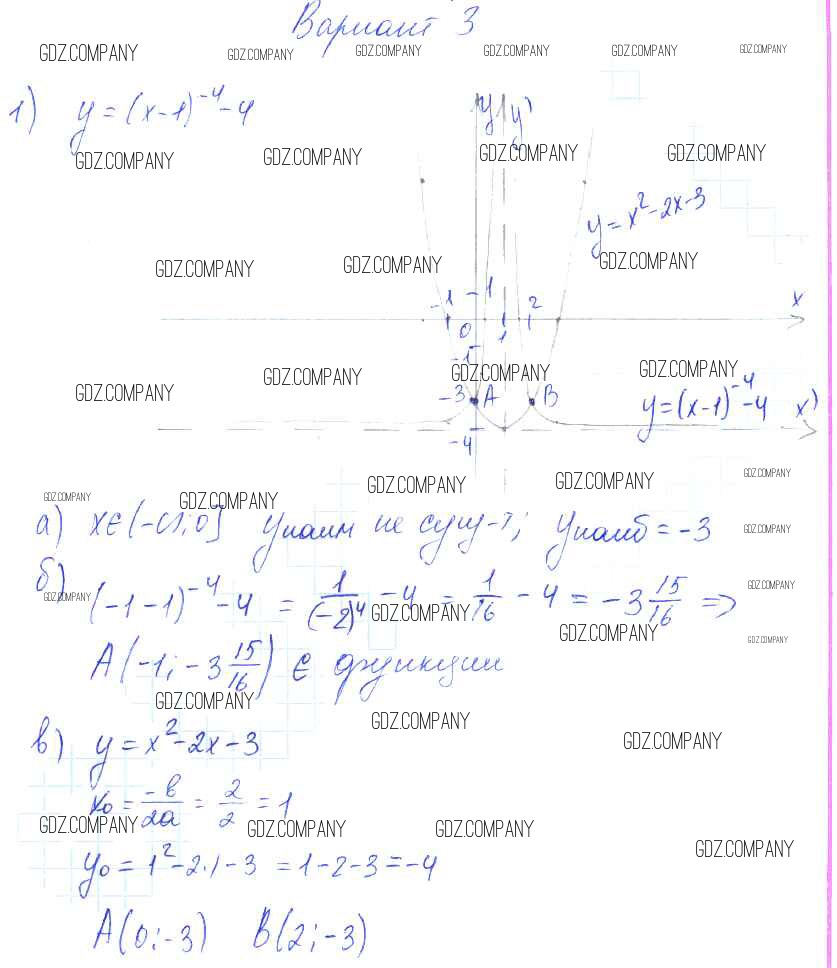 Вариант 3
GDZ.COMPANY GDZ.COMPANY GDZ.COMPANY GDZ.COMPANY GDZ.COMPANY GDZ.COMPANY
1) y = (x-1)⁻⁴-4
y y'
GDZ.COMPANY GDZ.COMPANY GDZ.COMPANY GDZ.COMPANY
y = x²-2x-3
GDZ.COMPANY GDZ.COMPANY GDZ.COMPANY
-1 1 2 x
0 1
-1
GDZ.COMPANY GDZ.COMPANY GDZ.COMPANY GDZ.COMPANY
-3 A B y=(x-1)⁻⁴-4 x'
-4
GDZ.COMPANY GDZ.COMPANY GDZ.COMPANY GDZ.COMPANY GDZ.COMPANY
а) x∈(-∞;0] yнаим не сущ-т; yнаиб = -3
GDZ.COMPANY
б) (-1-1)⁻⁴-4 = 1/(-2)⁴ - 4 = 1/16 - 4 = -3 15/16 =>
GDZ.COMPANY GDZ.COMPANY GDZ.COMPANY GDZ.COMPANY GDZ.COMPANY
A(-1; -3 15/16) ∈ функции
GDZ.COMPANY GDZ.COMPANY GDZ.COMPANY
в) y = x²-2x-3
x₀ = -b/2a = 2/2 = 1
GDZ.COMPANY GDZ.COMPANY GDZ.COMPANY GDZ.COMPANY
y₀ = 1²-2·1-3 = 1-2-3 = -4
A(0;-3) B(2;-3)